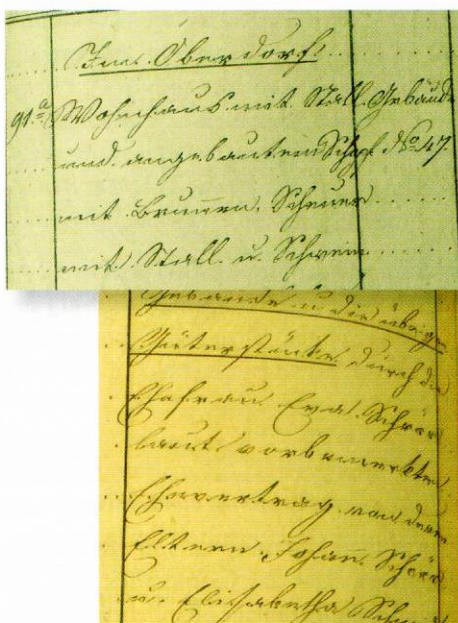 Im Oberdorf.
91.a Wohnhaus mit Stall, Gebäude
und angebautem Schopf No 47.
mit Brunnen, Scheuer
mit Stall u. Schwein
Gebäude u. die übrigen
Güterstücke durch die
Ehefrau Eva Schwar
laut vorbemerktem
Ehevertrag von deren
Eltern Johann
u. Elisabetha